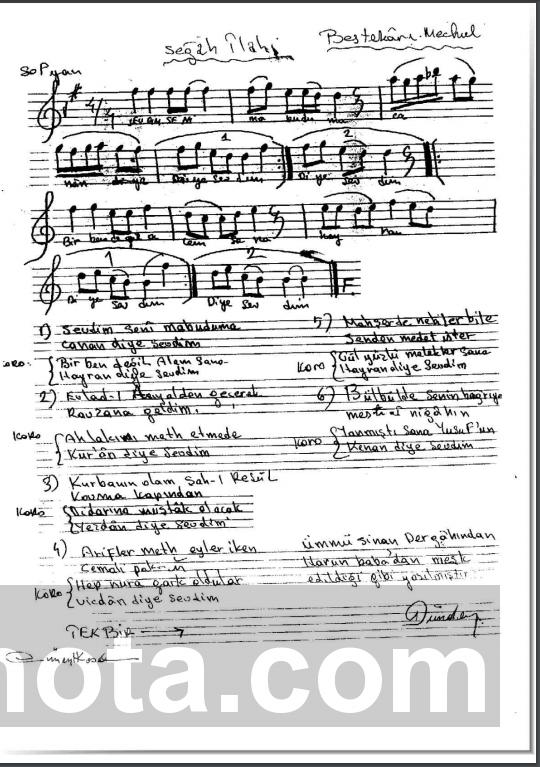 Segâh İlahi
Bestekârı. Mechul
Sofyan
4/4
SEV DİM SE Nİ
ma budu ma
ca
nân diye
Diye Sev dim
1
2
Di ye Sev dim
Bir ben değil a
lem Sa na
Hay
ran
1
2
Di ye Sev dim
Diye Sev dim
F.
1) Sevdim seni mabuduma
canan diye sevdim
KORO: Bir ben değil Alem Sana
Hayran diye Sevdim
2) Evlad-ı Ayalden geçerek
Ravzana geldim.
KORO Ahlakını meth etmede
Kur'ân diye Sevdim
3) Kurbanın olam Şah-ı Resül
Kovma Kapından
KORO Didarına müştâk olacak
Yezdân diye sevdim
4) Arifler meth eyler iken
Cemali pakin
KORO Hep nura gark oldular
vicdân diye sevdim
5) Mahşerde nebiler bile
Senden medet ister
KORO Gül yüzlü melekler sana
Hayran diye Sevdim
6) Bülbülde senin bağrıye
KORO Yanmıştı sana Yusuf'un
Kenan diye sevdim
ümmü sinan Dergâhından
Harun baba'dan meşk
edildiği gibi yazılmıştır
TEKBİR
nota.com